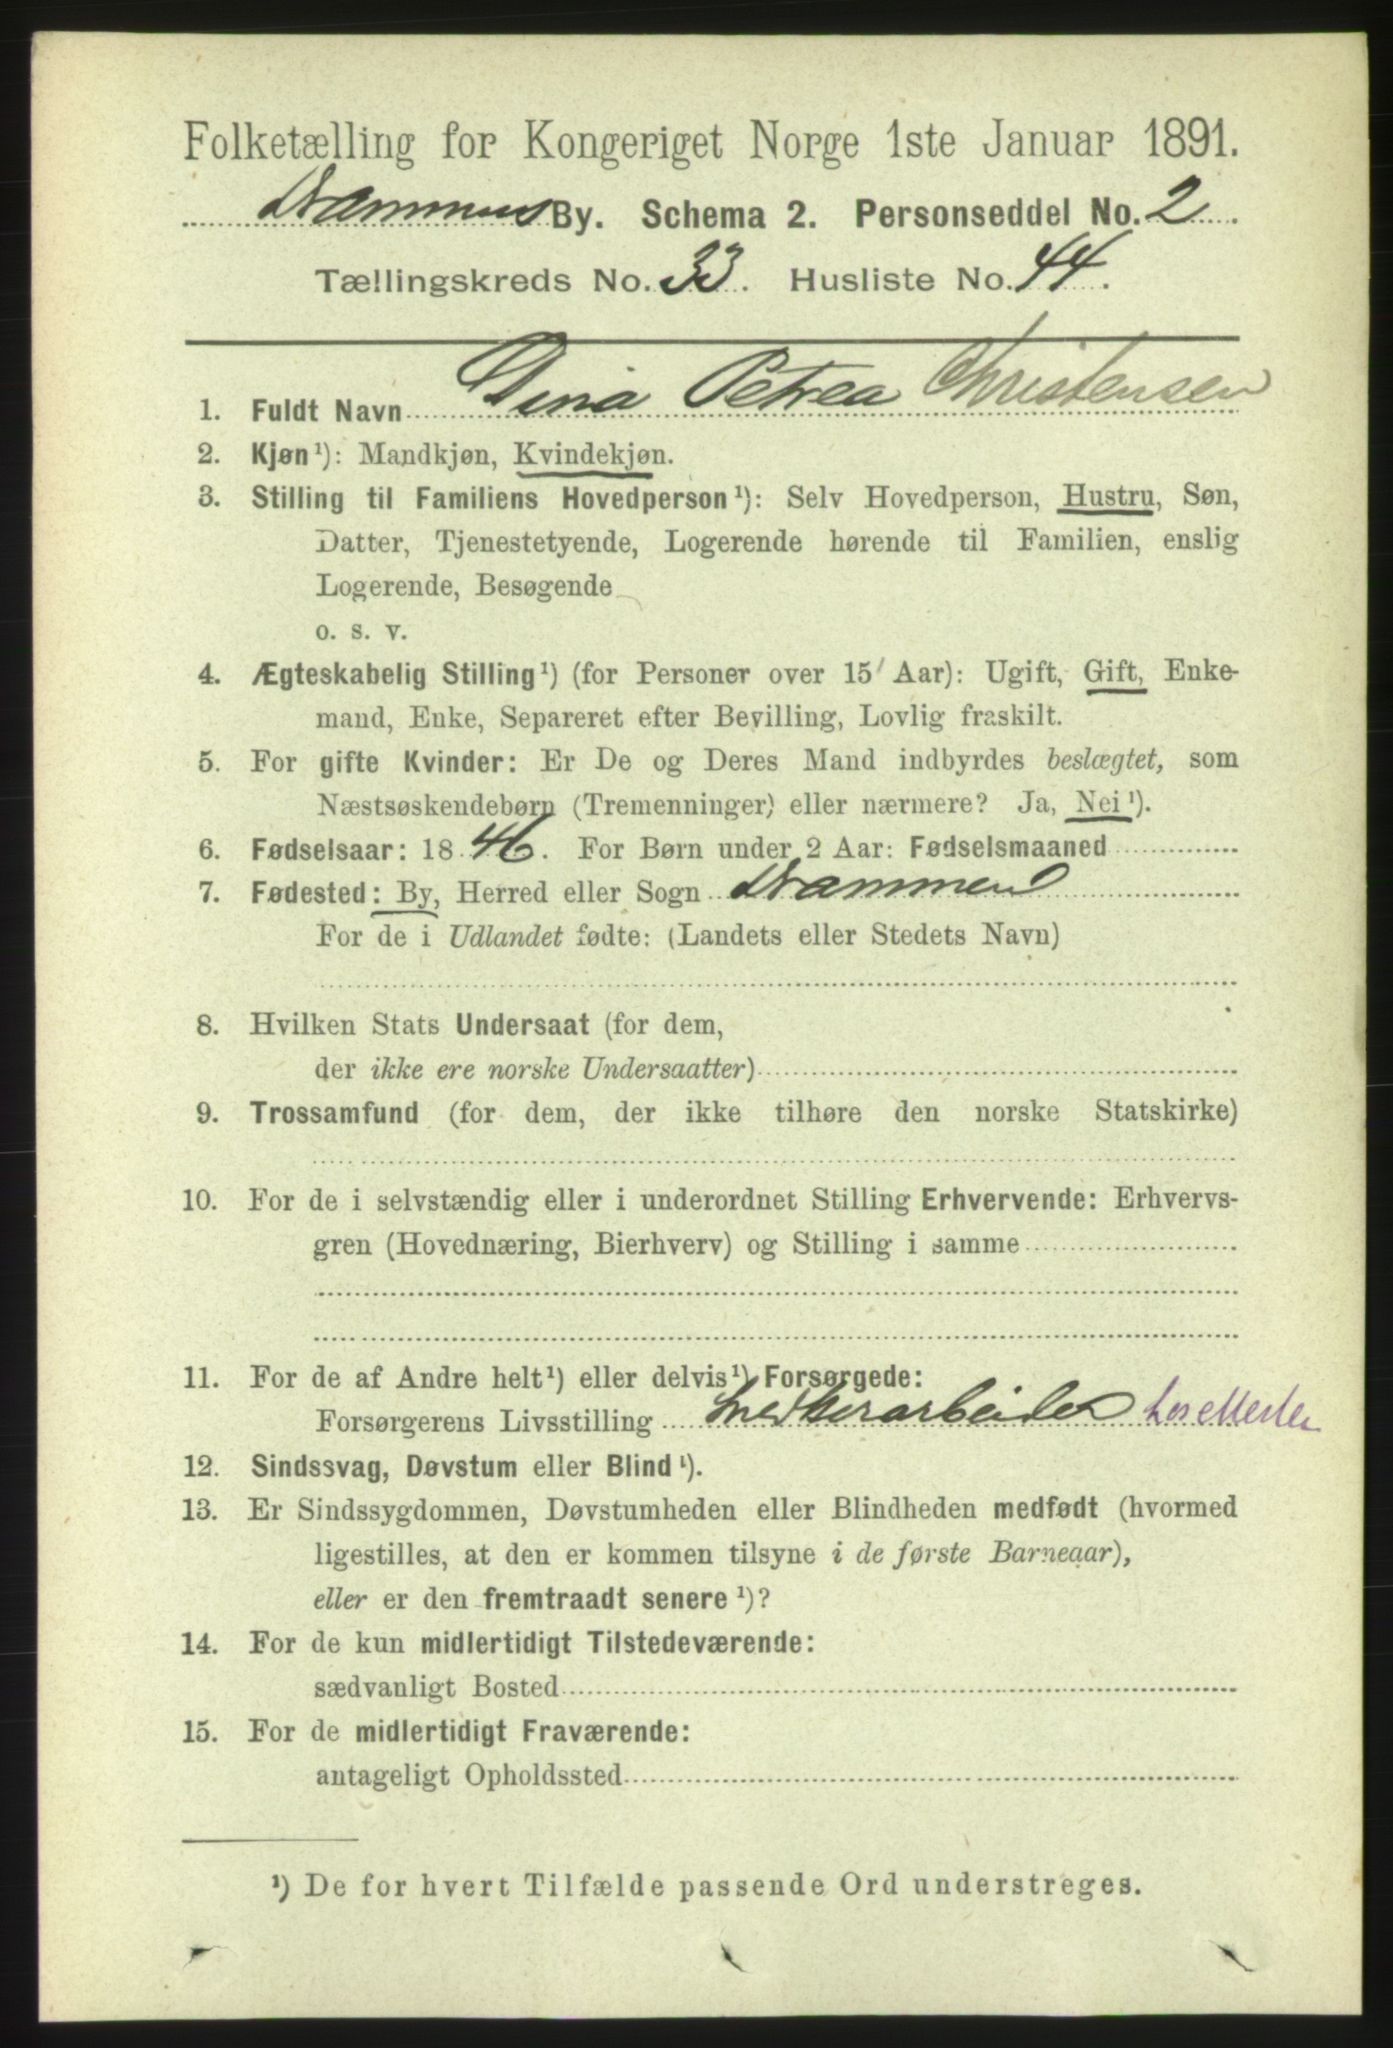 Folketælling for Kongeriget Norge 1ste Januar 1891.
Drammens By. Schema 2. Personseddel No. 2.
Tællingskreds No. 33. Husliste No. 44.
1. Fuldt Navn Dina Petrea Christensen
2. Kjøn¹): Mandkjøn, Kvindekjøn.
3. Stilling til Familiens Hovedperson¹): Selv Hovedperson, Hustru, Søn,
Datter, Tjenestetyende, Logerende hørende til Familien, enslig
Logerende, Besøgende
o. s. v.
4. Ægteskabelig Stilling¹) (for Personer over 15 Aar): Ugift, Gift, Enke-
mand, Enke, Separeret efter Bevilling, Lovlig fraskilt.
5. For gifte Kvinder: Er De og Deres Mand indbyrdes beslægtet, som
Næstsøskendebørn (Tremenninger) eller nærmere? Ja, Nei¹).
6. Fødselsaar: 1846. For Børn under 2 Aar: Fødselsmaaned
7. Fødested: By, Herred eller Sogn Drammen
For de i Udlandet fødte: (Landets eller Stedets Navn)
8. Hvilken Stats Undersaat (for dem,
der ikke ere norske Undersaatter)
9. Trossamfund (for dem, der ikke tilhøre den norske Statskirke)
10. For de i selvstændig eller i underordnet Stilling Erhvervende: Erhvervs-
gren (Hovednæring, Bierhverv) og Stilling i samme
11. For de af Andre helt¹) eller delvis¹) Forsørgede:
Forsørgerens Livsstilling
12. Sindssvag, Døvstum eller Blind¹).
13. Er Sindssygdommen, Døvstumheden eller Blindheden medfødt (hvormed
ligestilles, at den er kommen tilsyne i de første Barneaar),
eller er den fremtraadt senere¹)?
14. For de kun midlertidigt Tilstedeværende:
sædvanligt Bosted
15. For de midlertidigt Fraværende:
antageligt Opholdssted
¹) De for hvert Tilfælde passende Ord understreges.